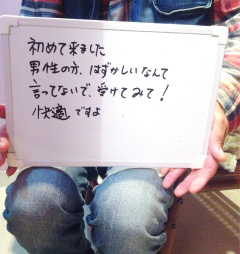 初めて来ました
男性の方、はずかしいなんて
言ってないで、受けてみて！
快適ですよ